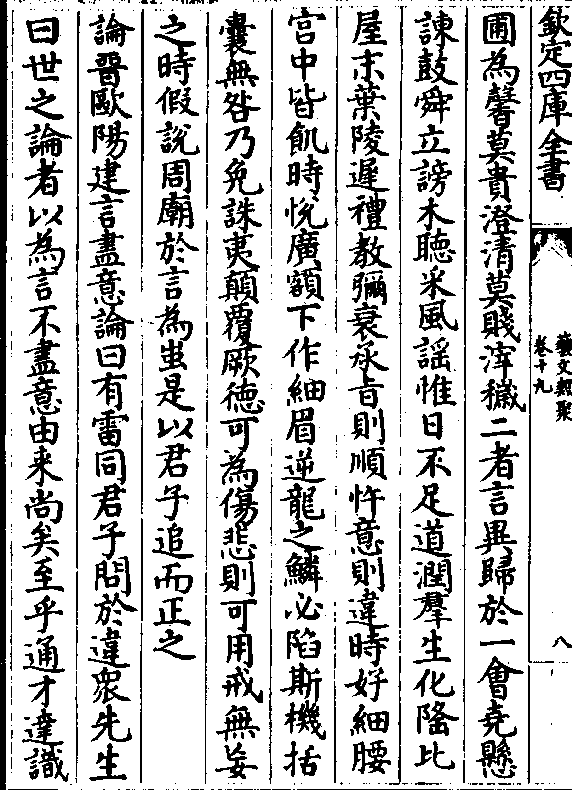 欽定四庫全書
藝文類聚
卷十九
八
圃為馨莫貴澄清莫賤滓穢二者言異歸於一會堯懸
諫鼓舜立謗木聽采風謡惟日不足道潤羣生化隆比
屋末葉陵遲禮教彌衰承旨則順忤意則違時好細腰
宫中皆飢時悅廣額下作細眉逆龍之鱗必陷斯機括
囊無咎乃免誅夷顛覆厥德可為傷悲則可用戒無妄
之時假說周廟於言為蚩是以君子追而正之
論晉歐陽建言盡意論曰有雷同君子問於違衆先生
曰世之論者以為言不盡意由来尚矣至乎通才達識